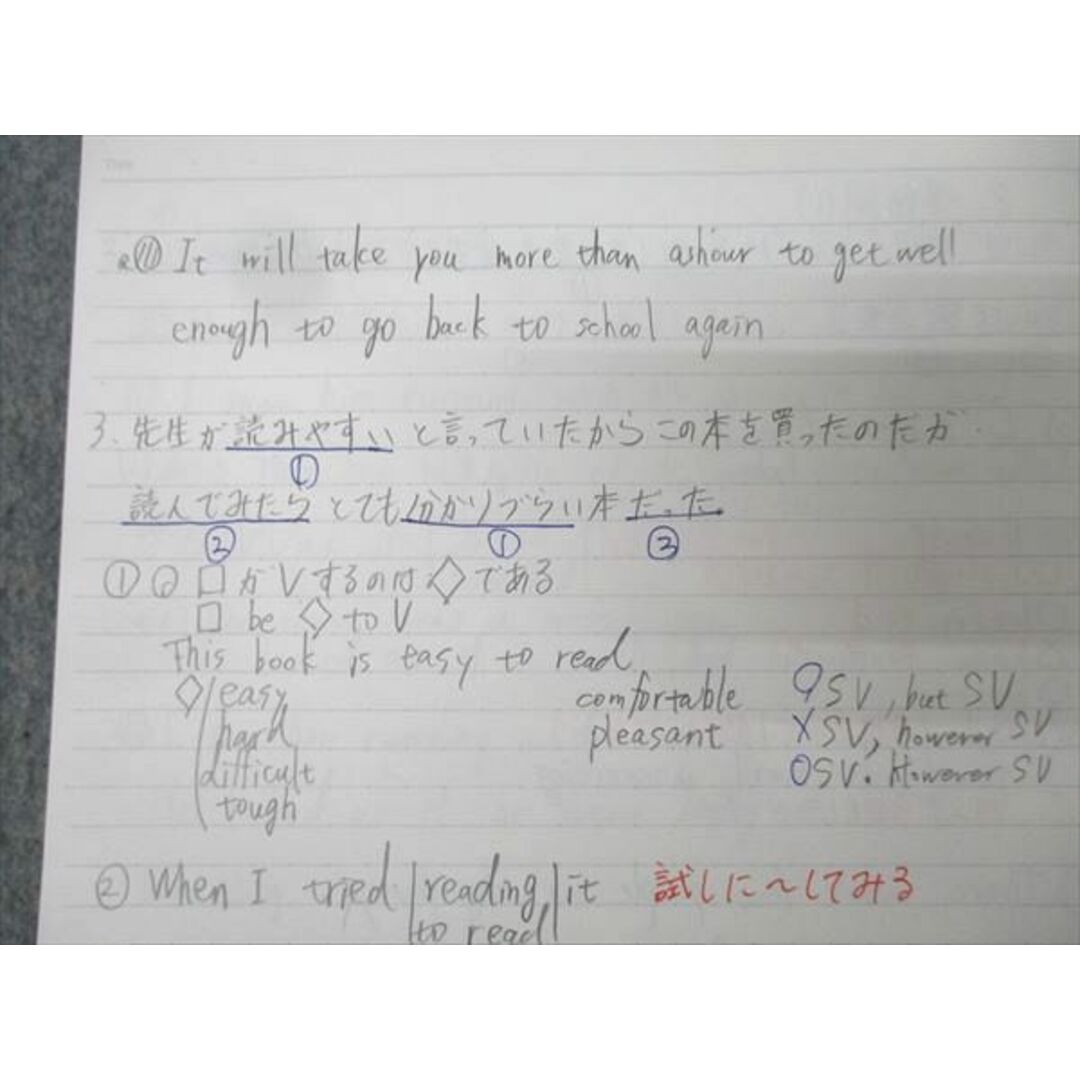 ⑪ It will take you more than ashour to get well
enough to go back to school again
3. 先生が読みやすいと言っていたからこの本を買ったのだが
① 
読んでみたらとても分かりづらい本だった
② ① ③
① □がVするのは◇である
□ be ◇ to V
This book is easy to read
◇ easy comfortable ○SV, but SV
hard pleasant ×SV, however SV
difficult ○SV. However SV
tough
② When I tried reading it 試しに〜してみる
to read